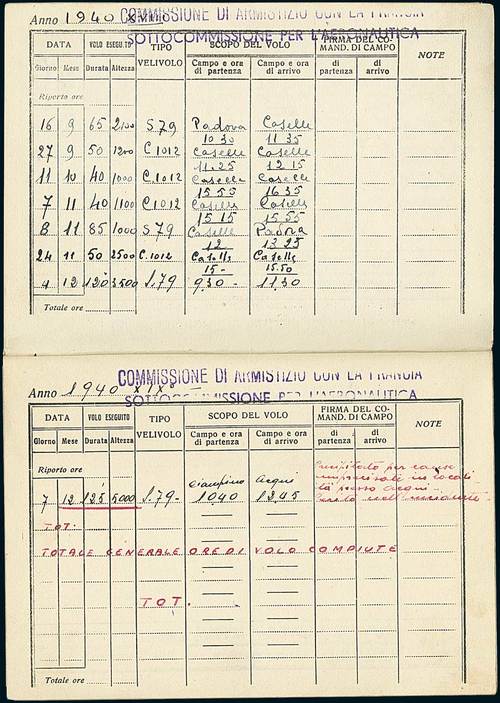 Anno 1940 XVIII
COMMISSIONE DI ARMISTIZIO CON LA FRANCIA
SOTTOCOMMISSIONE PER L'AERONAUTICA
DATA VOLO ESEGUITO TIPO VELIVOLO SCOPO DEL VOLO FIRMA DEL COMAND. DI CAMPO NOTE
Giorno Mese Durata Altezza Campo e ora di partenza Campo e ora di arrivo di partenza di arrivo
Riporto ore
16 9 65 2100 S79 Padova Caselle
10 30 11 35
27 9 50 1200 C.1012 Caselle Caselle
11.25 12 15
11 10 40 1000 C.1012 Caselle Caselle
15 55 16 35
7 11 40 1100 C.1012 Caselle Caselle
15 15 15 55
8 11 85 1000 S79 Caselle Padova
12 13 25
24 11 50 2500 C.1012 Caselle Caselle
15 - 15.50
4 12 120 3500 S.79 930 - 11.30
Totale ore
Anno 1940 XIX°
COMMISSIONE DI ARMISTIZIO CON LA FRANCIA
SOTTOCOMMISSIONE PER L'AERONAUTICA
DATA VOLO ESEGUITO TIPO VELIVOLO SCOPO DEL VOLO FIRMA DEL COMAND. DI CAMPO NOTE
Giorno Mese Durata Altezza Campo e ora di partenza Campo e ora di arrivo di partenza di arrivo
Riporto ore
precipitato per cause
imprecisate in locali-
tà presso Acqui.
Ciampino Acqui
7 12 125 5000 S.79- 1040 1245
TOT.
TOTALE GENERALE ORE DI VOLO COMPIUTE
TOT.
Totale ore